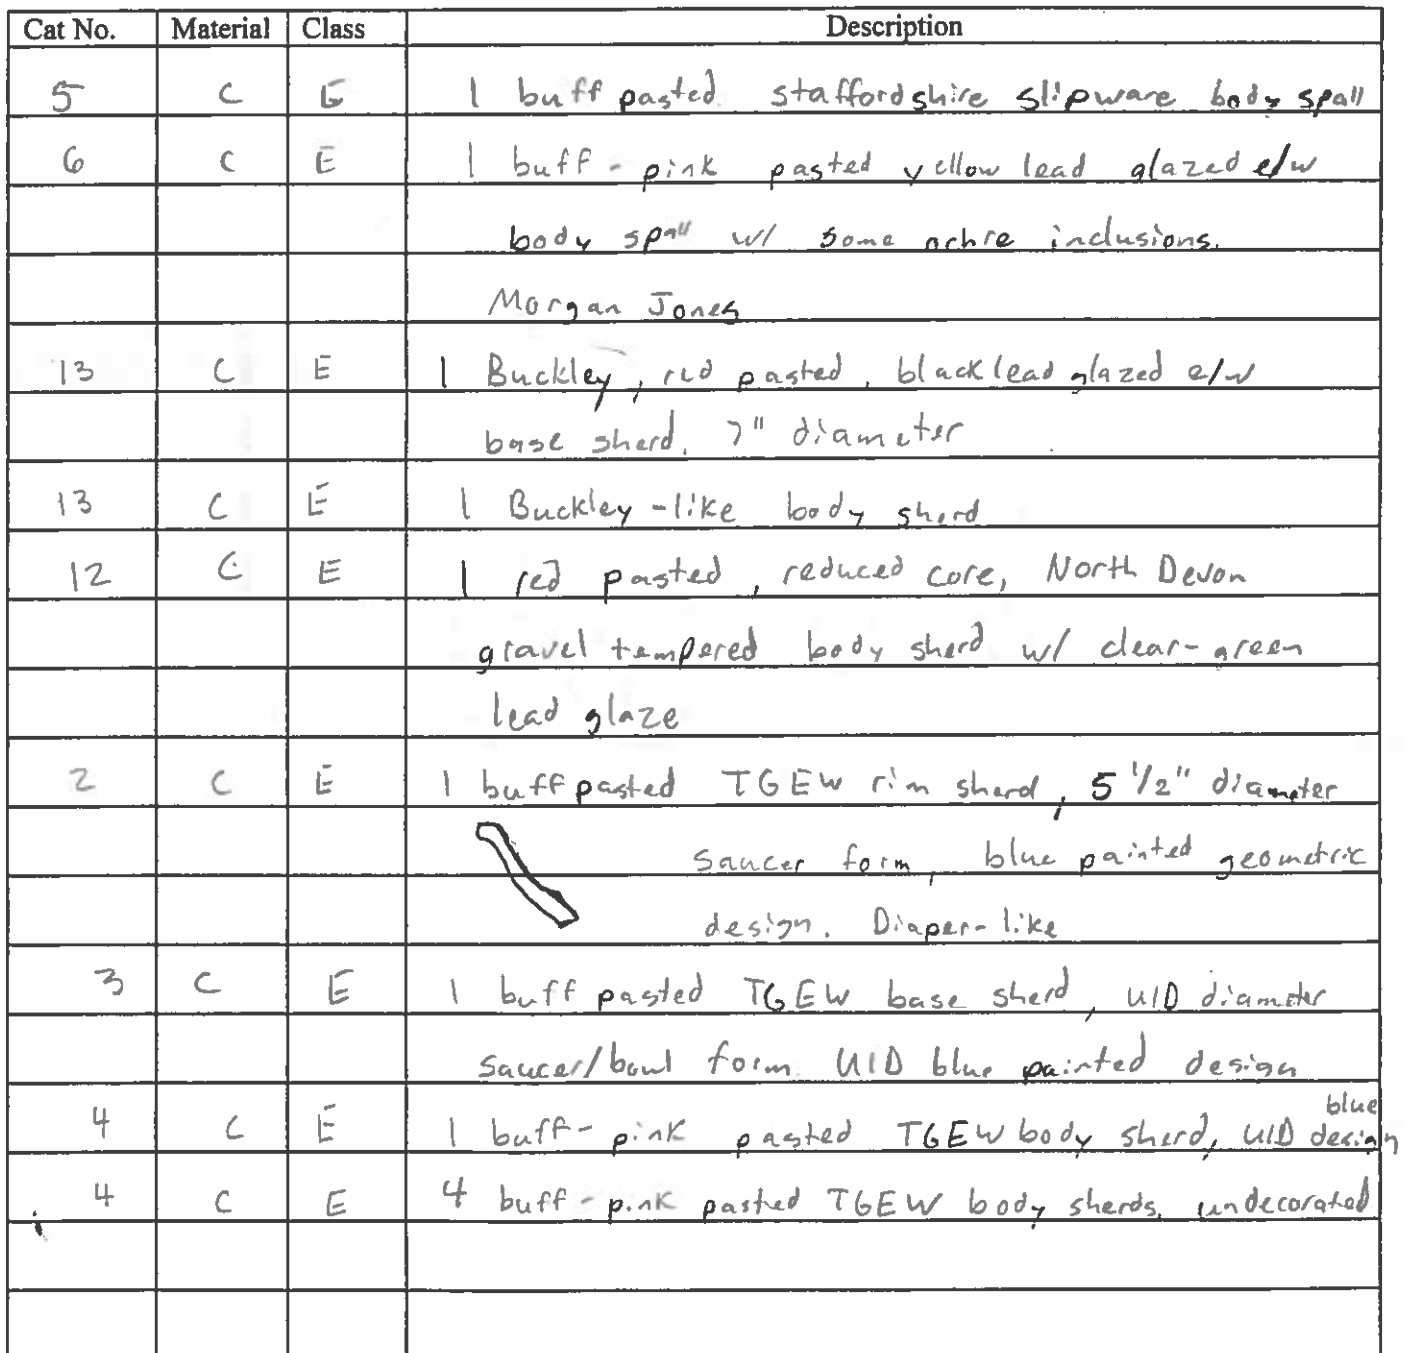 Cat No. Material Class Description
5 C E 1 buff pasted staffordshire slipware body spall
6 C E 1 buff-pink pasted yellow lead glazed e/w
body spall w/ some ochre inclusions.
Morgan Jones
13 C E 1 Buckley, red pasted, black lead glazed e/w
base sherd. 7" diameter
13 C E 1 Buckley-like body sherd
12 C E 1 red pasted, reduced core, North Devon
gravel tempered body sherd w/ clear-green
lead glaze
2 C E 1 buff pasted TGEW rim sherd, 5 1/2" diameter
saucer form, blue painted geometric
design. Diaper-like
3 C E 1 buff pasted TGEW base sherd, UID diameter
saucer/bowl form. UID blue painted design
4 C E 1 buff-pink pasted TGEW body sherd, UID blue design
4 C E 4 buff-pink pasted TGEW body sherds, undecorated